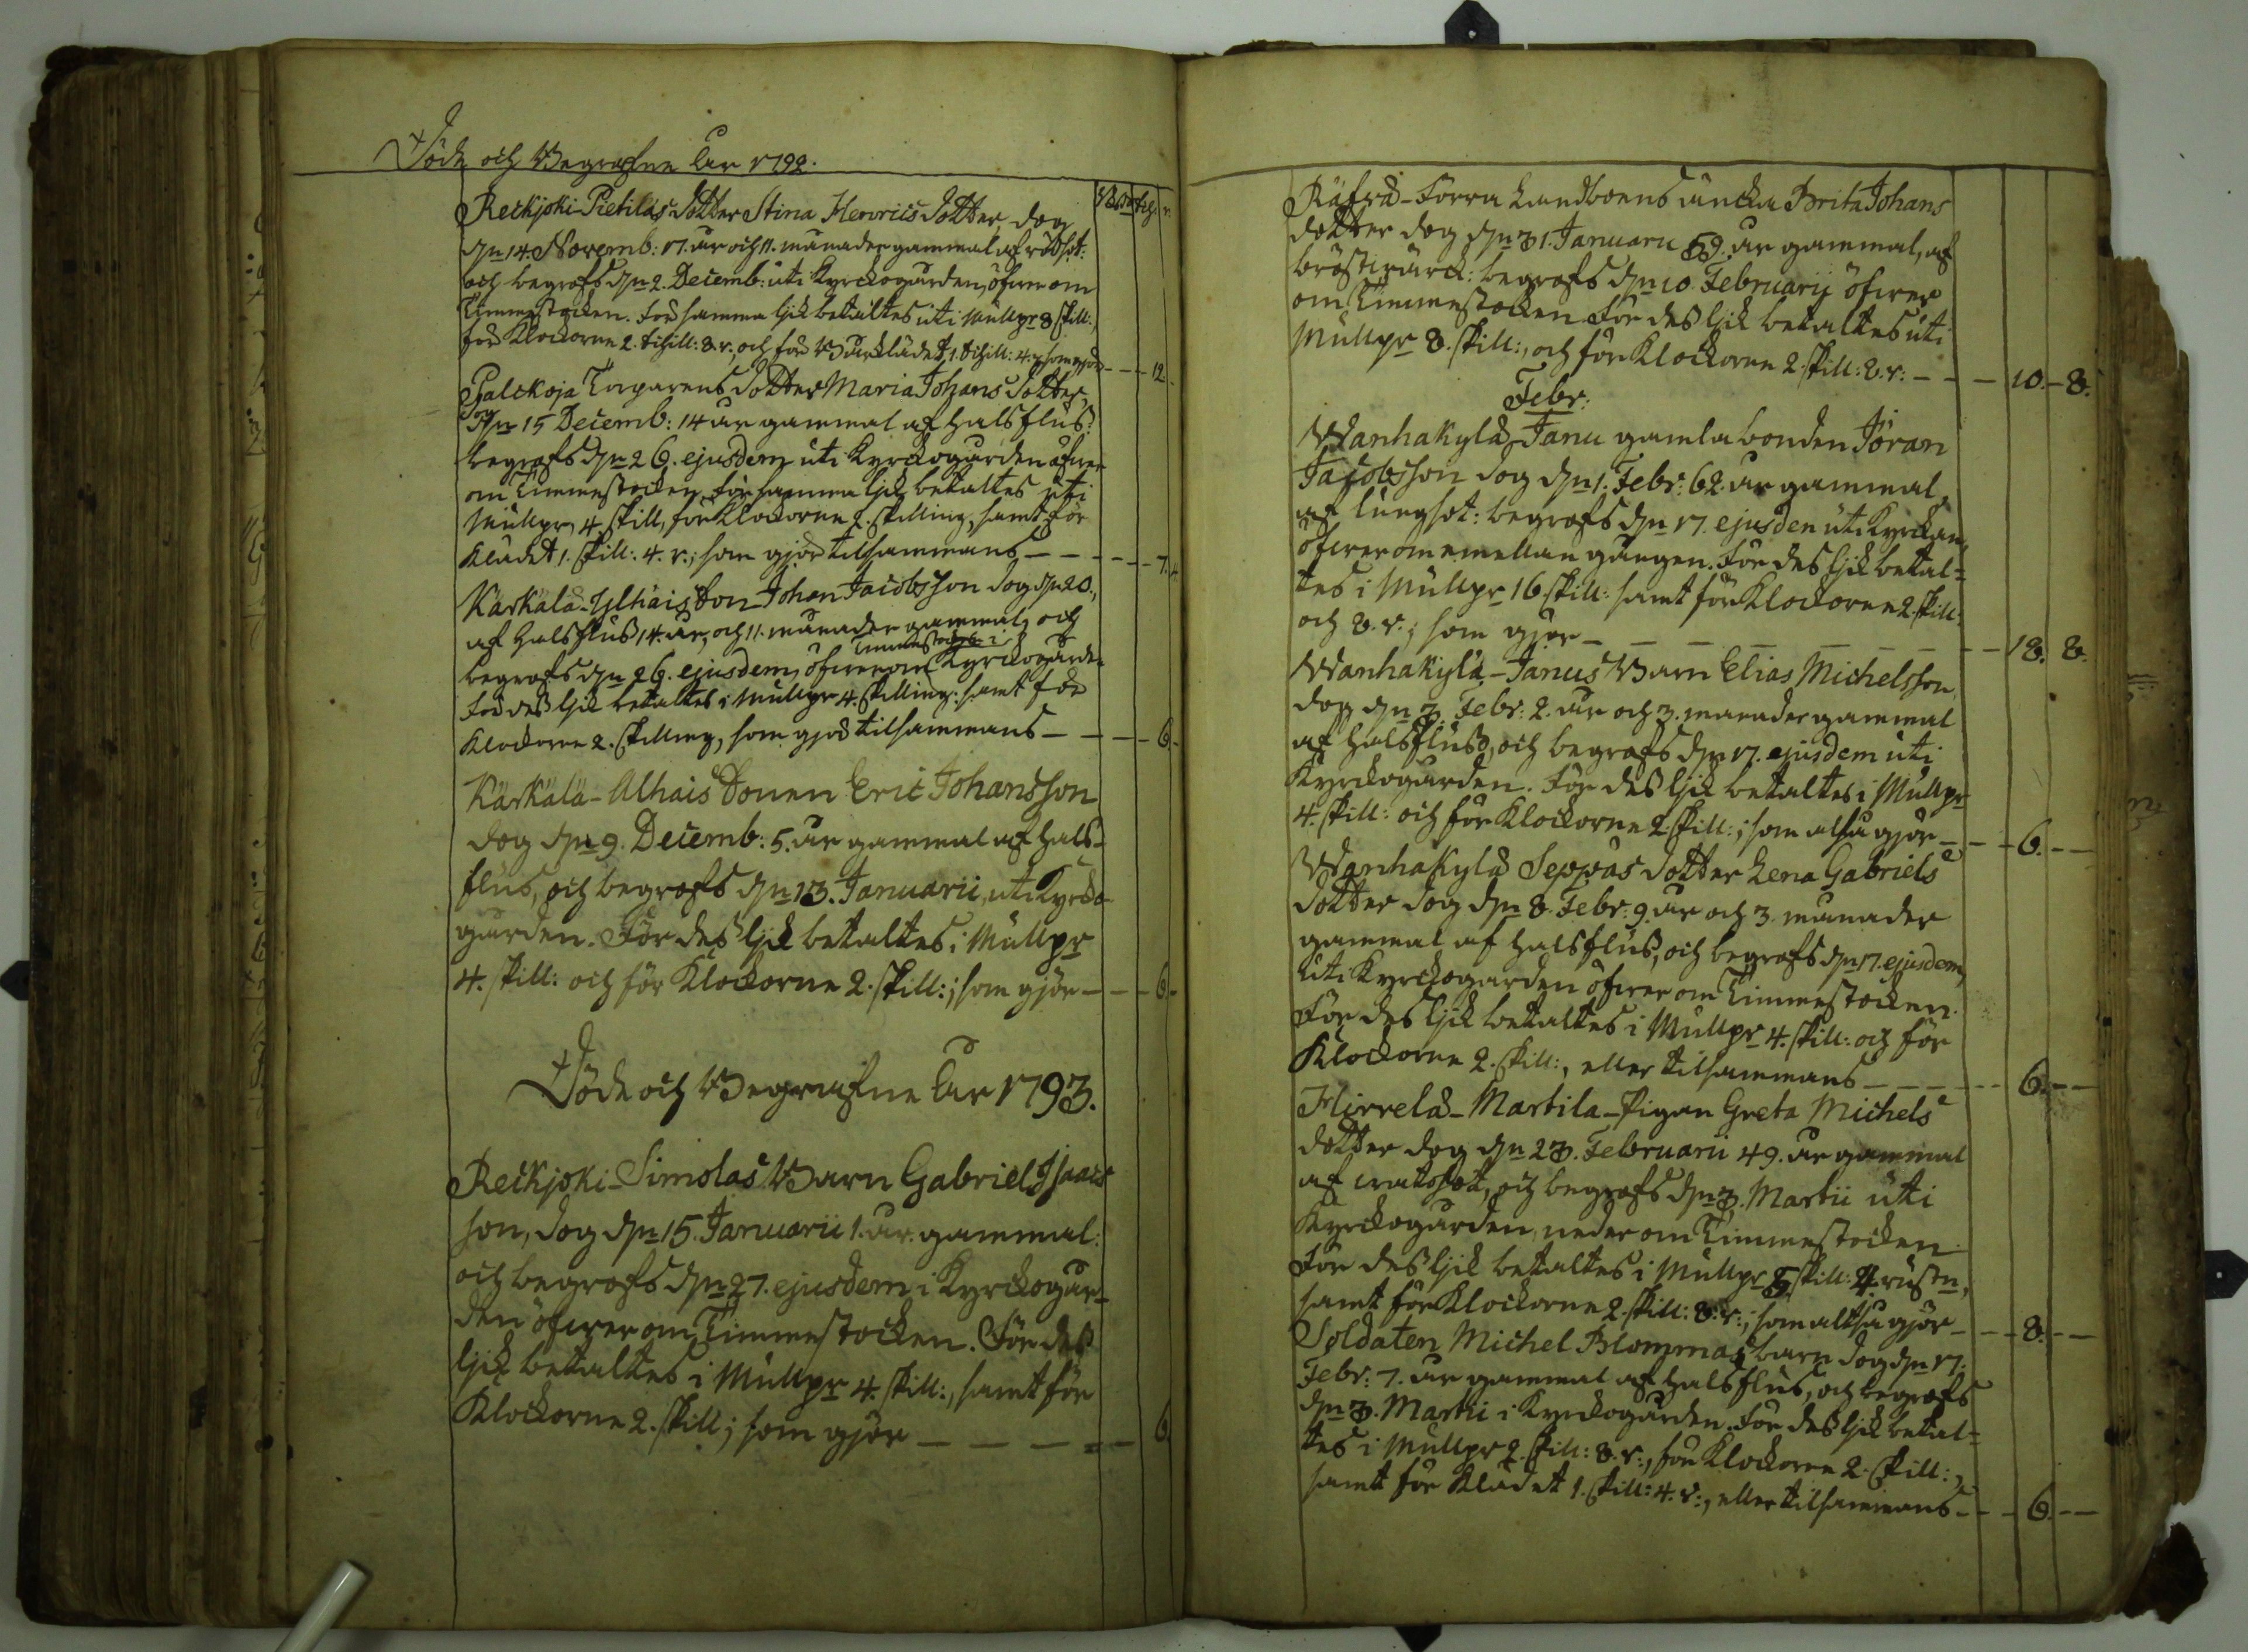 Döde och Begrafne Åhr 1792.
Reckjoki-Pietiläs dotter Stina Henrics dotter, dog
dn 14. Novemb: 17. år och 11. månader gammal af rödsot:
och begrofs dn 2. Decemb: uti Kyrckogården, öfwer om
Timmestocken. För samma lik betaltes uti Mullpr 8 skill:,
för Klockorne 2. skill: 8. r., och för Bårklädet 1. skill: 4. r., som gjör - - - 12.
Palckoja Torparens dotter Maria Johans dotter,
dog dn 15 Decemb: 14 år gammal af halsflus:
begrofs dn 26. ejusdem uti Kyrckogården öfwer
om Timmestocken, för samma lik betaltes uti
Mullpr, 4 skill, för Klockorne 2. skilling, samt för
Klädet 1. skill: 4. r.; som gjör tilsammans - - - - 7. 4
Kärkälä-Ylhäis Son Johan Jacobsson dog dn 20.,
af halsflus 14. år, och 11. månader gammal, och
begrofs dn 26. ejusdem, öfwer om Timmestocken i Kyrckogården
För des lik betaltes i Mullpr 4. skilling: samt för
Klockorne 2. skilling, som gjör tilsammans - - - 6.
Kärkälä-Alhais Sonen Eric Johansson
dog dn 9. Decemb: 5. år gammal af hals-
flus, och begrofs dn 13. Januarii, uti Kyrcko
gården. För des lik betaltes i Mullpr
4. skill: och för Klockorne 2. skill:; som gjör - - - 6.
Döde och Begrafne Åhr 1793.
Reckjoki-Simolas Barn Gabriel Isaacs
son, dog dn 15. Januarii 1. år gammal:
och begrofs dn 27. ejusdem i Kyrckogår-
den öfwer om Timmestocken. För des
lik betaltes i Mullpr 4. skill:, samt för
Klockorne 2. skill; som gjör - - - - - 6.
Räfsä-Forra Landboens äncka Brita Johans
dotter dog dn 31. Januarii 59. år gammal, af
bröstwärck: begrofs dn 10 Februarij öfwer
om Timmestocken. För des lik betaltes uti
Mullpr 8. skill:, och för Klockorne 2. skill: 8. r: - - - 10. - 8.
Febr:
Wanhakylä Janu gamla bonden Jöran
Jacobsson dog dn 1. Febr: 62. år gammal,
af lungsot: begrofs dn 17. ejusden uti Kyrckan,
öfwer om emellan gången. För des lik betal=
tes i Mullpr 16 skill: samt för Klockorne 2. skill:
och 8. r.; som gjör - - - - - - 18. 8.
Wanhakylä-Janus Barn Elias Michelsson,
dog dn 3. Febr: 2. år och 3. månader gammal
af halsfluss, och begrofs dn 17. ejusdem uti
Kyrckogården. För des lik betaltes i Mullpr
4. skill: och för Klockorne 2. skill:; som altså gjör - - - 6. - -
Wanhakylä Seppäs dotter Lena Gabriels
dotter dog dn 8. Febr: 9. år och 3. månader
gammal af halsflus, och begrofs dn 17. ejusdem,
uti Kyrckogården öfwer om Timmestocken.
För des lik betaltes i Mullpr 4. skill: och för
Klockorne 2. skill:, eller tilsammans - - - - - 6. - -
Hirrelä-Martila-pigan Greta Michels
dotter dog dn 23. Februarii 49. år gammal
af watusot, och begrofs dn 3. Martii uti
Kyrckogården, neder om Timmestocken.
För des lik betaltes i Mullpr 5 skill: 4. rustn,
samt för Klockorne 2. skill: 8. r:; som altså gjör - - - 8. - -
Soldaten Michel Blommas barn dog dn 17.
Febr: 7. år gammal af halsflus, och begrofs
dn 3. Martii i Kyrckogården. För des lik betal=
tes i Mullpr 2. skill: 8. r., för Klockorne 2. skill:,
samt för Klädet 1. skill: 4. r:, eller tilsammans - - - 6. - -